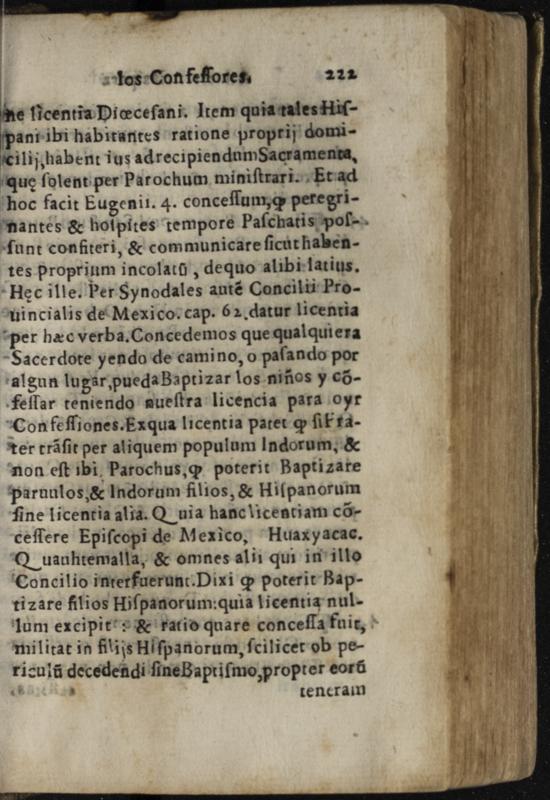 los Confessores. 222
ne licentia Diœcesani. Item quia tales His-
pani ibi habitantes ratione proprij domi-
cilij, habent ius ad recipiendum Sacramenta,
quę solent per Parochum ministrari. Et ad
hoc facit Eugenii. 4. concessum, ꝙ peregri-
nantes & hospites tempore Paschatis pos-
sunt confiteri, & communicare sicut haben-
tes proprium incolatū, de quo alibi latius.
Hęc ille. Per Synodales autē Concilii Pro-
uincialis de Mexico. cap. 62. datur licentia
per hæc verba. Concedemos que qualquiera
Sacerdote yendo de camino, o pasando por
algun lugar, pueda Baptizar los niños y cō-
fessar teniendo nuestra licencia para oyr
Confessiones. Ex qua licentia patet ꝙ si Fra-
ter trāsit per aliquem populum Indorum, &
non est ibi Parochus, ꝙ poterit Baptizare
paruulos, & Indorum filios, & Hispanorum
sine licentia alia. Quia hanc licentiam cō-
cessere Episcopi de Mexico, Huaxyacac.
Quauhtemalla, & omnes alii qui in illo
Concilio interfuerunt. Dixi ꝙ poterit Bap-
tizare filios Hispanorum: quia licentia nul-
lum excipit: & ratio quare concessa fuit,
militat in filijs Hispanorum, scilicet ob pe-
riculū decedendi sine Baptismo, propter eorū
teneram